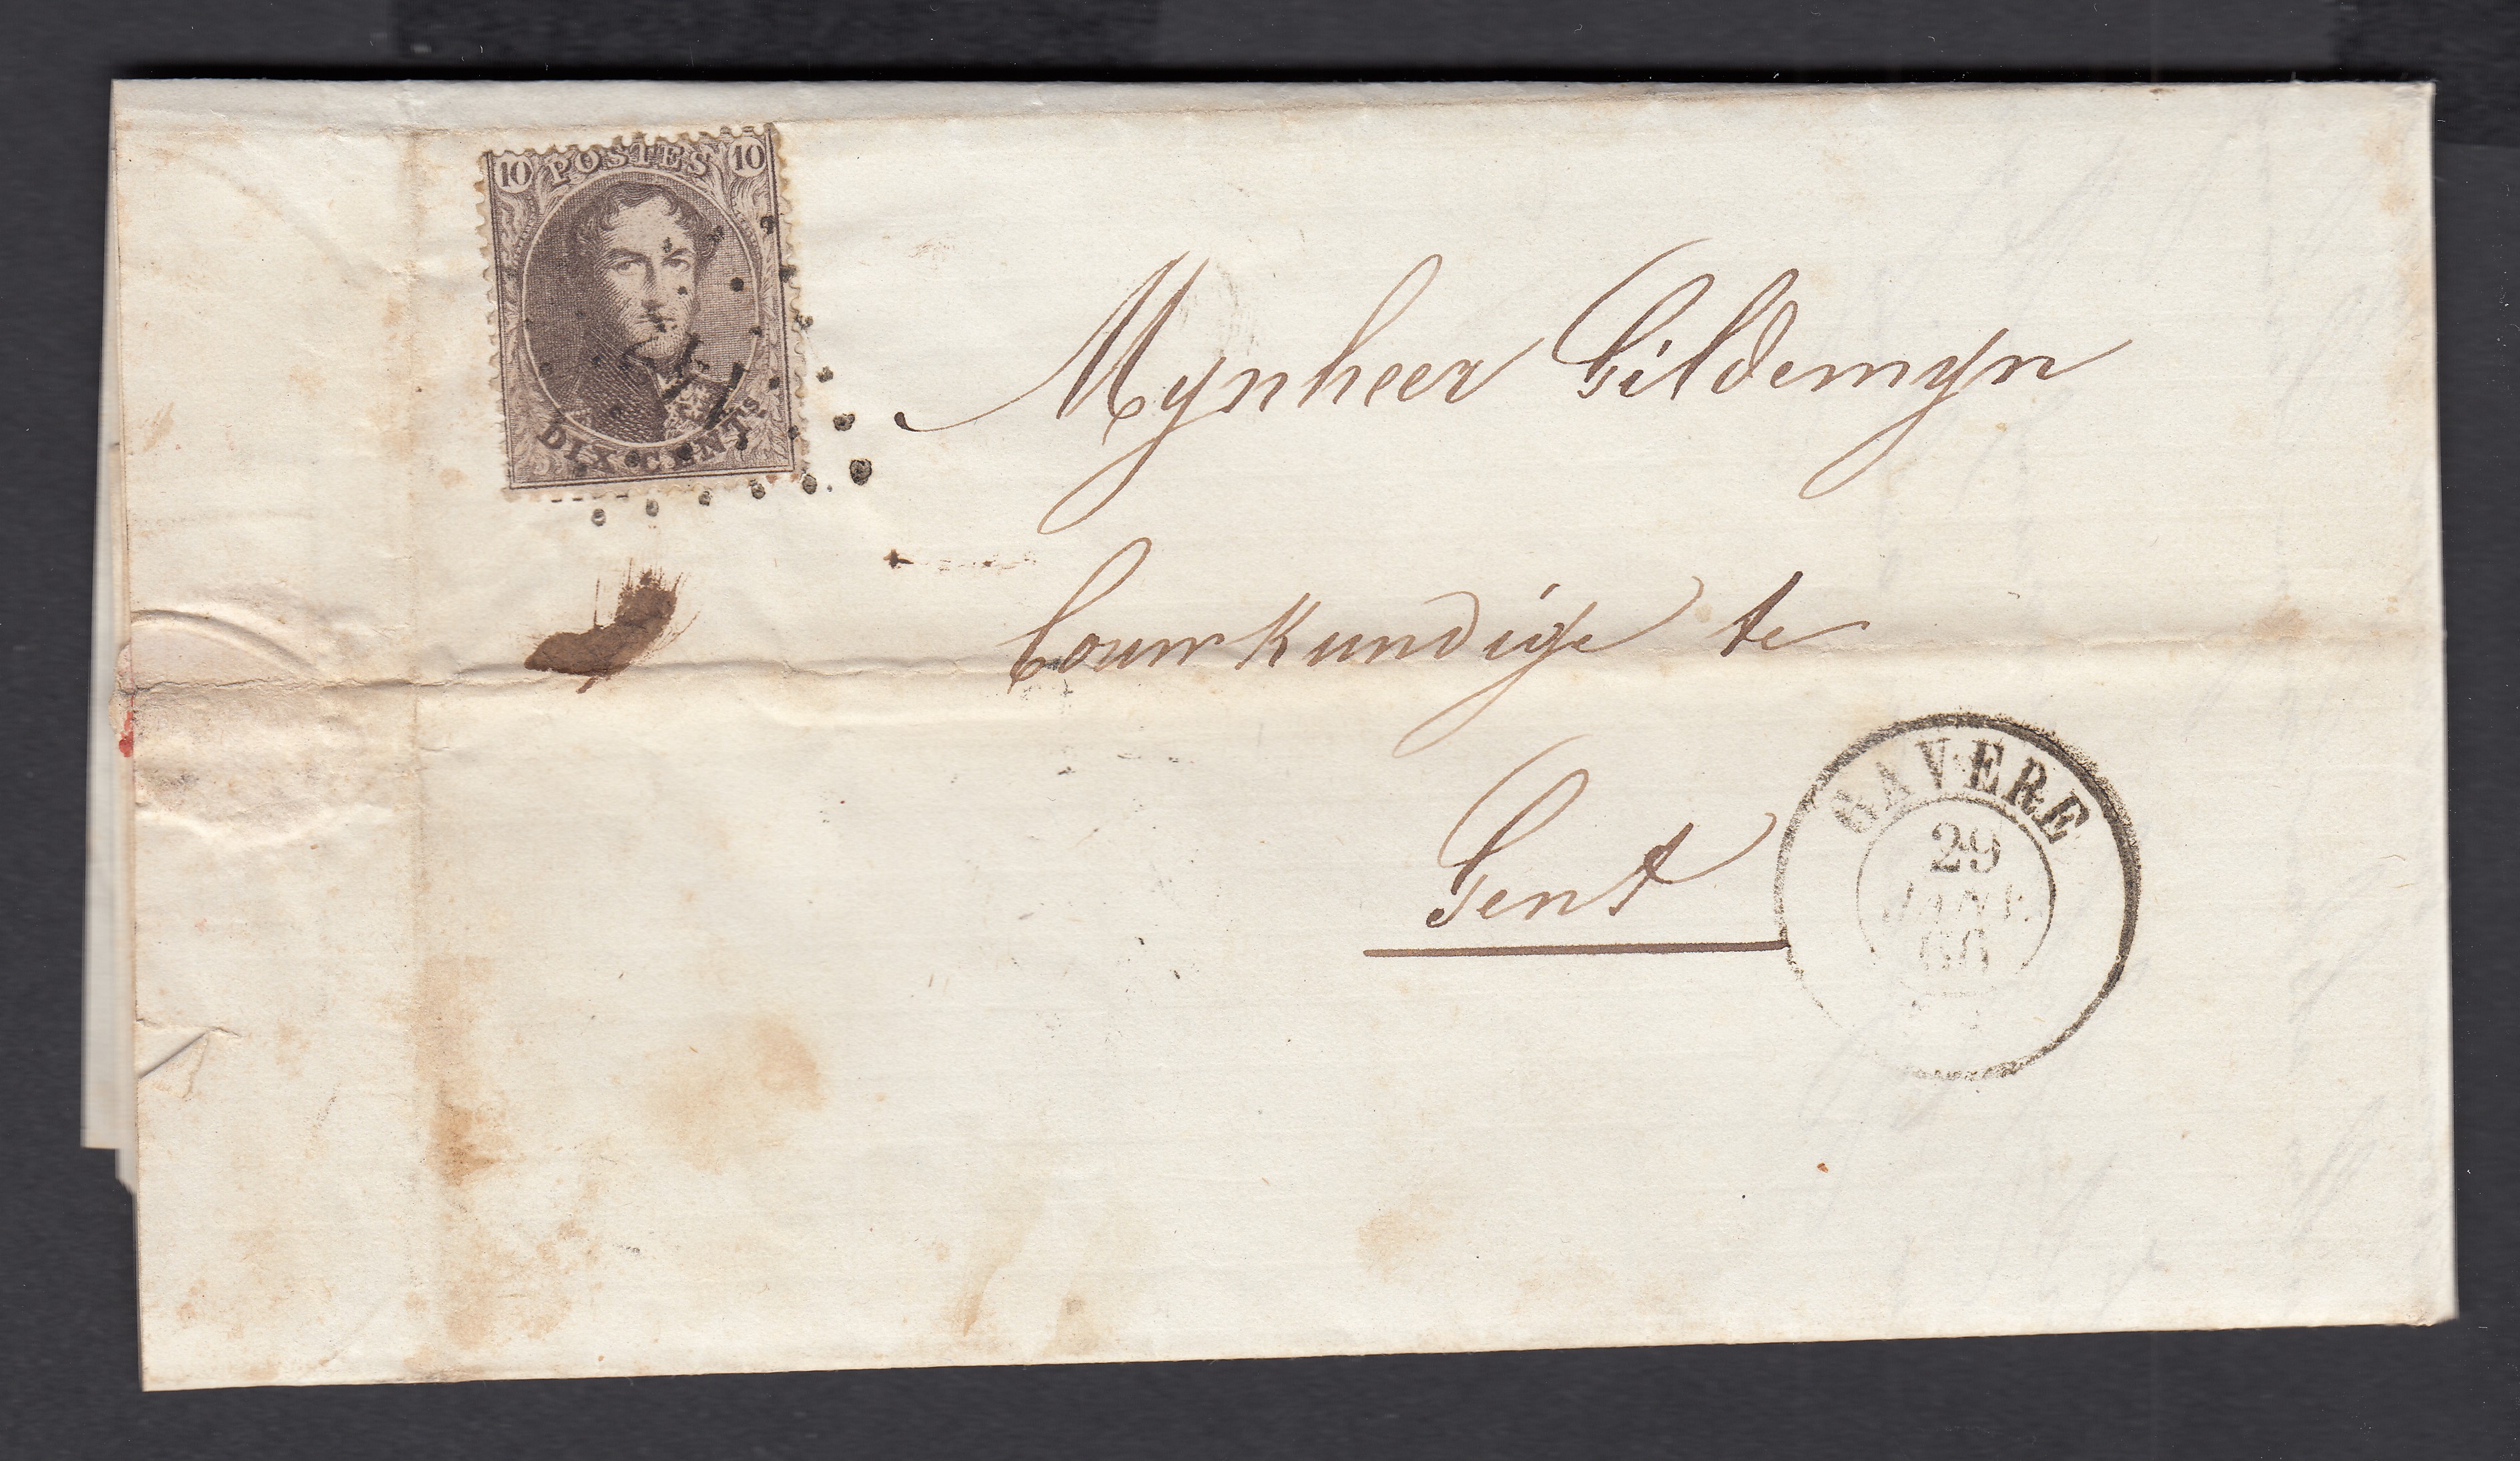 10 POSTES 10
DIX CENTS
Mynheer Gildemyn
bouwkundige te
Gent
GAVERE
29
JANV.
66